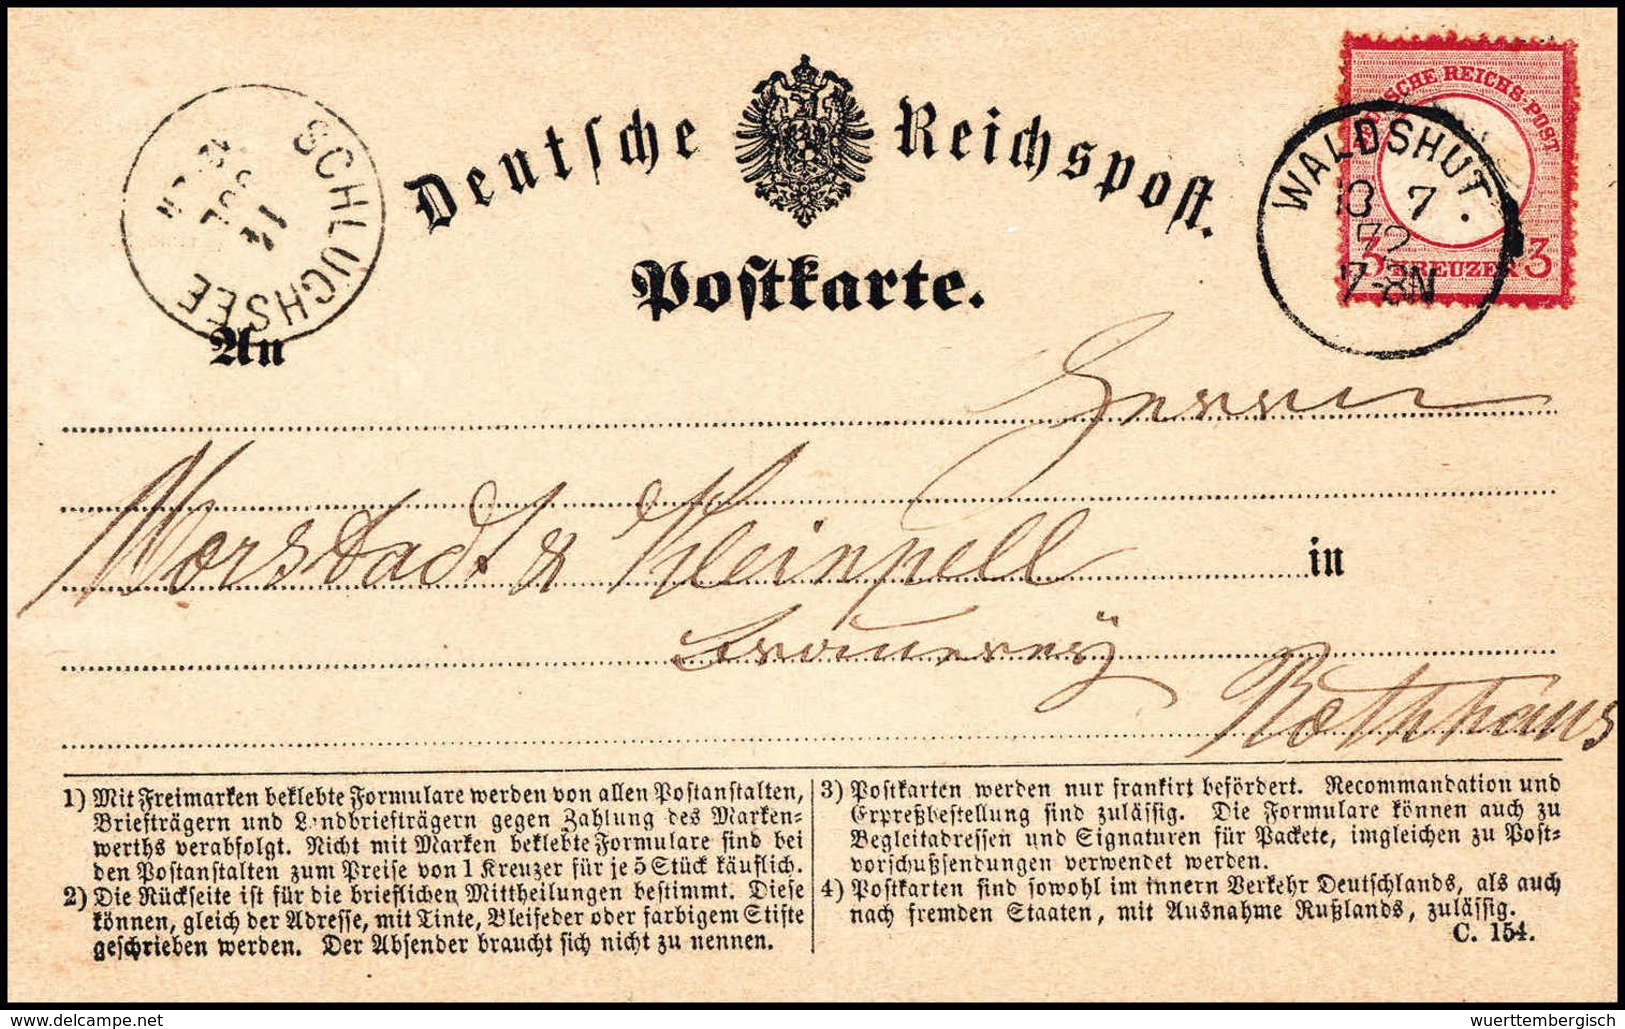 Deutsche Reichspost.
Postkarte.
SCHLUCHSEE
14
JUL
DEUTSCHE REICHS-POST
3 KREUZER 3
WALDSHUT.
13 7
72
7-8N
An
Herrn
Morstadt & Kleinpell
in
Brauerey
Rothhaus
1) Mit Freimarken beklebte Formulare werden von allen Postanstalten,
Briefträgern und Landbriefträgern gegen Zahlung des Marken-
werths verabfolgt. Nicht mit Marken beklebte Formulare sind bei
den Postanstalten zum Preise von 1 Kreuzer für je 5 Stück käuflich.
2) Die Rückseite ist für die brieflichen Mittheilungen bestimmt. Diese
können, gleich der Adresse, mit Tinte, Bleifeder oder farbigem Stifte
geschrieben werden. Der Absender braucht sich nicht zu nennen.
3) Postkarten werden nur frankirt befördert. Recommandation und
Expreßbestellung sind zulässig. Die Formulare können auch zu
Begleitadressen und Signaturen für Packete, imgleichen zu Post-
vorschußsendungen verwendet werden.
4) Postkarten sind sowohl im innern Verkehr Deutschlands, als auch
nach fremden Staaten, mit Ausnahme Rußlands, zulässig.
C. 154.
delcampe.net
wuerttembergisch